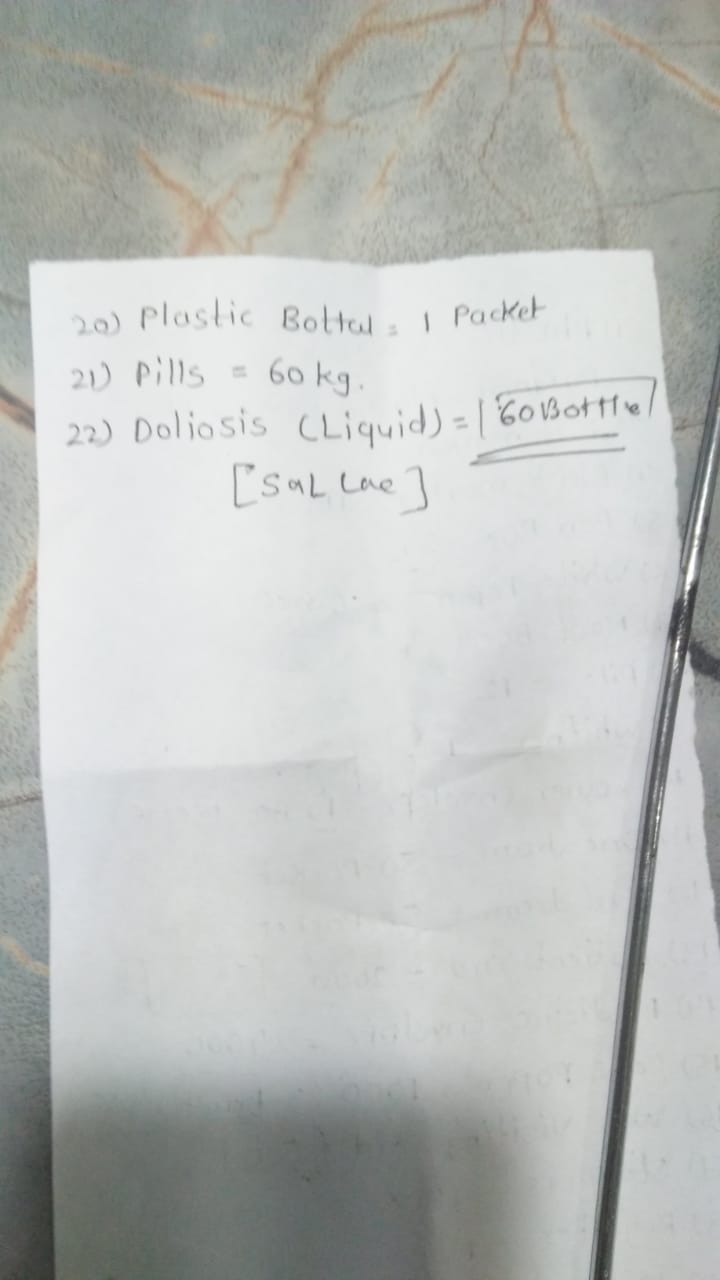 20) Plastic Bottal = 1 Packet
21) Pills = 60 kg.
22) Doliosis (Liquid) = 60 Bottle
[SaL Lae]